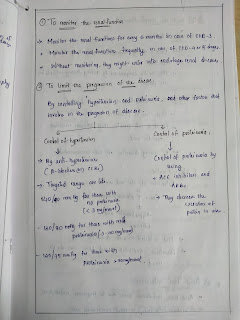 ① To monitor the renal function
→ Monitor the renal functions for every 6 months in case of CKD-3
→ Monitor the renal functions frequently in case of CKD-4 or 5 stages
→ Without monitoring they might enter into endstage renal disease.
② To limit the progression of the disease.
By controlling hypertension and proteinuria, and other factors that
involve in the progression of disease.
Control of hypertension
Control of proteinuria.
→ By anti-hypertensives
(β-blockers, CCBs)
→ Targeted ranges are
140/90 mmHg for those with
no proteinuria
proteinuria
mmHg for those with
proteinuria
Control of proteinuria by
using
→ ACE inhibitors and
ARBs.
→ They decrease the
excretion of
protein in urine.